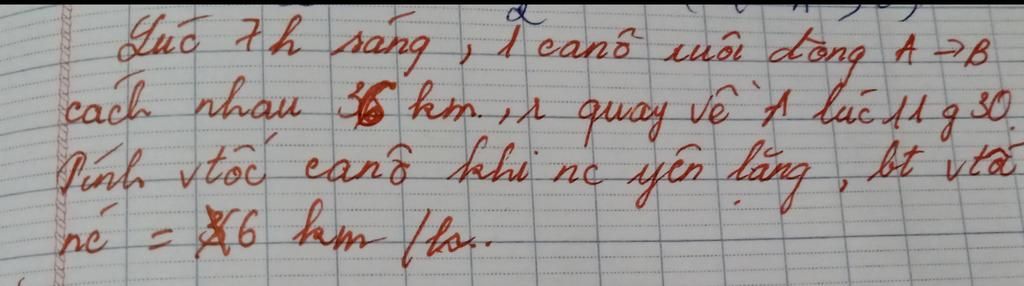 Lúc 7h sáng, 1 canô xuôi dòng A → B
cách nhau 36 km., r quay về A lúc 11 g 30.
Tính vtốc canô khi nc yên lặng, bt vtốc
nc = 6 km/h.